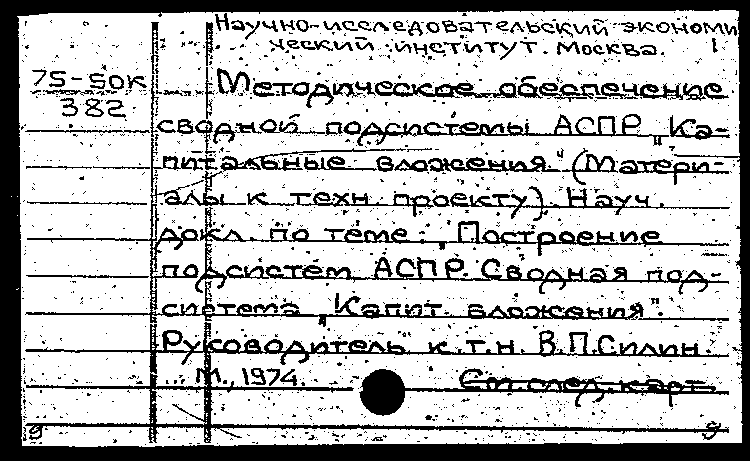 Научно-исследовательский экономи
ческий институт. Москва.
75-50К
382
Методическое обеспечение
сводной подсистемы АСПР „Ка-
питальные вложения" (Матери-
алы к техн. проекту). Науч.
докл. по теме: „Построение
подсистем АСПР. Сводная под-
система „Капит. вложения".
Руководитель к.т.н. В.П.Силин.
М., 1974.
См. след. карт.
9 9